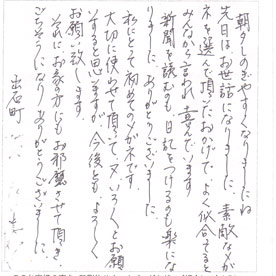 朝夕しのぎやすくなりましたね
先日はお世話になりました。素敵なメガ
ネを選んで頂いたおかげで、よく似合てると
みんなから言われ喜んでいます
新聞を読むのも日記をつけるのも楽にな
りました。ありがとうございました。
私にとって初めてのメガネです。
大切に使わせて頂いて、又いろくとお願
いすると思いますが、今後とも、よろしく
お願い致します
それに、お家の方にもお邪魔させて頂き、
ごちそうになりありがとうございました。
出石町